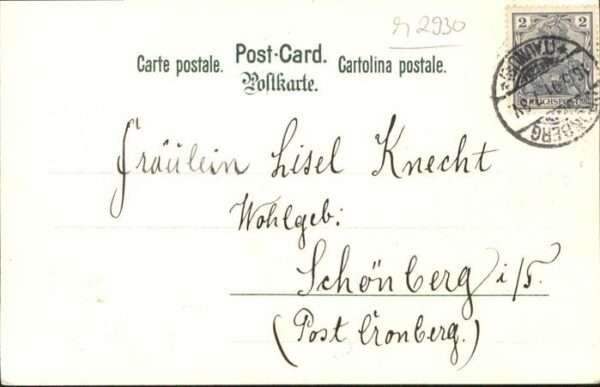 2930
Carte postale. Post-Card. Cartolina postale.
Postkarte.
2 2
REICHSPOST
Fräulein Lisel Knecht
Wohlgeb:
Schönberg i/T.
(Post Cronberg.)